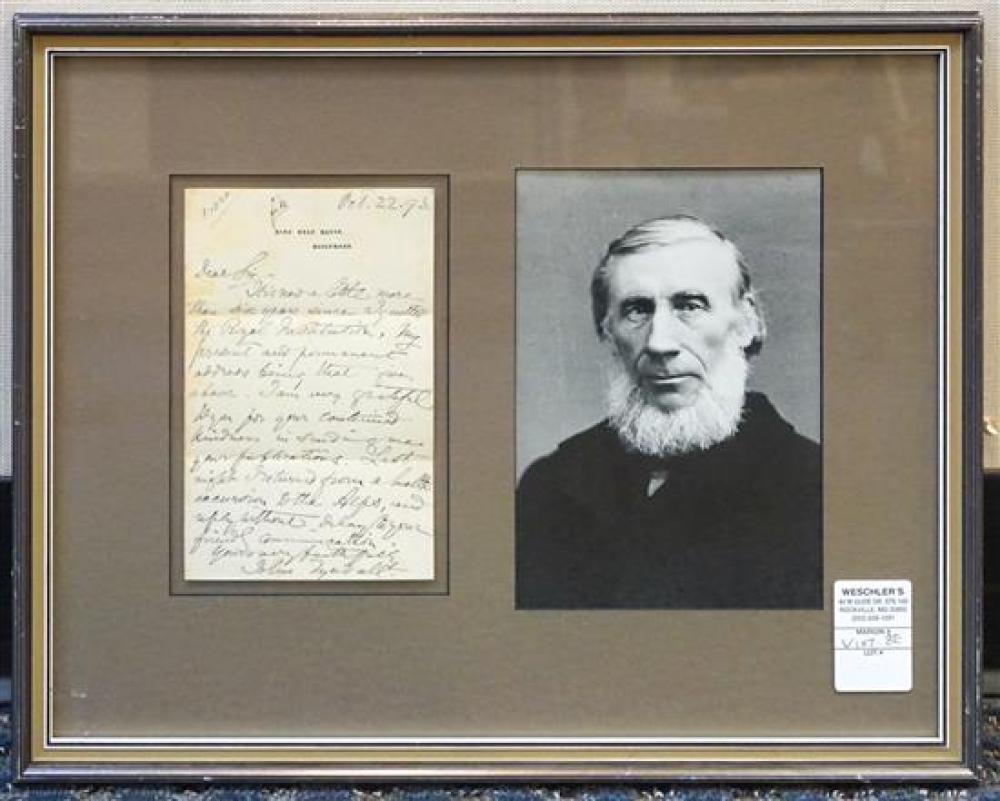 Oct. 22. 93
HIND HEAD HOUSE,
HASLEMERE.
Dear Sir,
It is now a little more
than six years since I quitted
the Royal Institution, my
present and permanent
address being that given
above. I am very grateful
to you for your continued
kindness in sending me
your publications. Last
night I returned from a
excursion to the Alps, and
reply without delay to your
friendly communication
Yours very faithfully
John Tyndall.
WESCHLER'S
ROCKVILLE, MD
MARION
LOT #